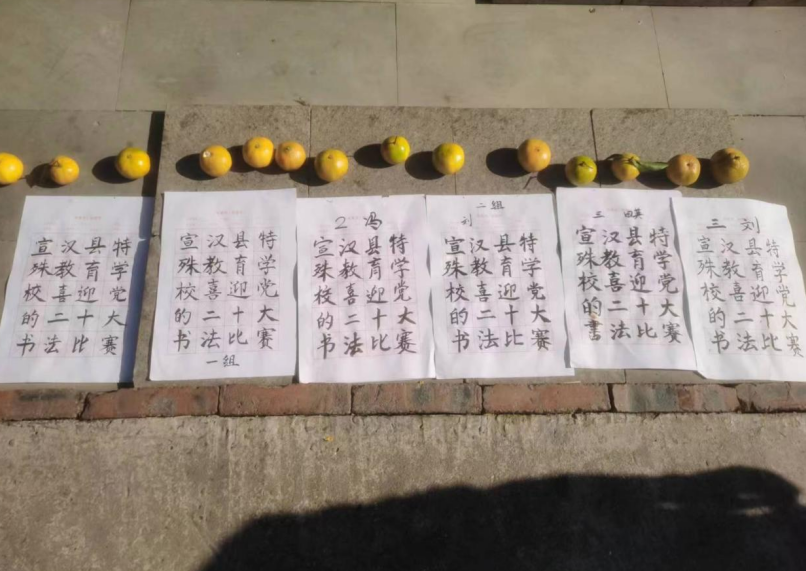 宣汉县特
殊教育学
校喜迎党
的二十大
书法比赛
宣汉县特
殊教育学
校喜迎党
的二十大
书法比赛
一组
2 冯
宣汉县特
殊教育学
校喜迎党
的二十大
书法比赛
二组
刘
宣汉县特
殊教育学
校喜迎党
的二十大
书法比赛
三 田英
宣汉县特
殊教育学
校喜迎党
的二十大
書法比赛
三 刘
宣汉县特
殊教育学
校喜迎党
的二十大
书法比赛